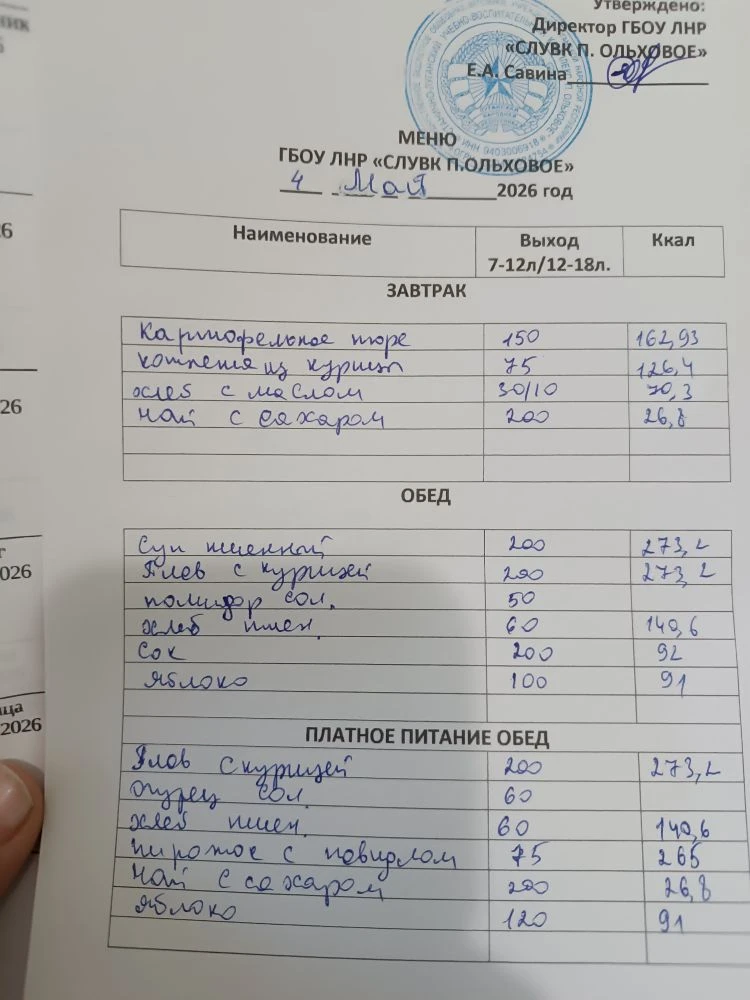 Утверждено:
Директор ГБОУ ЛНР
«СЛУВК П. ОЛЬХОВОЕ»
Е.А. Савина
МЕНЮ
ГБОУ ЛНР «СЛУВК П.ОЛЬХОВОЕ»
4 Май 2026 год
Наименование Выход 7-12л/12-18л. Ккал
ЗАВТРАК
Картофельное пюре 150 162,93
котлета из курицы 75 126,4
хлеб с маслом 30/10 70,3
Чай с сахаром 200 26,8
ОБЕД
Суп пшенный 200 273,2
Плов с курицей 200 273,2
помидор сол. 50
хлеб пшен. 60 140,6
Сок 200 92
яблоко 100 91
ПЛАТНОЕ ПИТАНИЕ ОБЕД
Плов с курицей 200 273,2
Огурец сол. 60
хлеб пшен. 60 140,6
пирожок с повидлом 75 265
Чай с сахаром 200 26,8
яблоко 120 91
26
026
2026